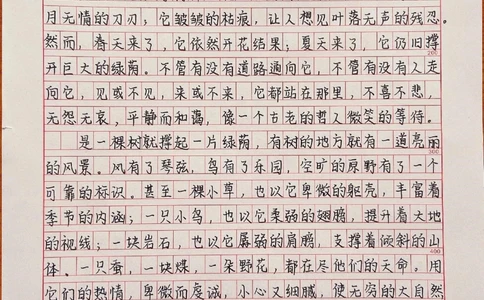 月无情的刀刃；它皱皱的枯痕，让人想见叶落无声的残忍。
然而，春天来了，它依然开花结果；夏天来了，它仍旧撑
开巨大的绿荫。不管有没有道路通向它，不管有没有人走
向它，见或不见，来或不来，它都站在那里，不喜不悲，
无怨无哀，平静而和蔼，像一个古老的哲人微笑的等待。
是一棵树就撑起一片绿荫，有树的地方就有一道亮丽
的风景。风有了琴弦，鸟有了乐园，空旷的原野有了一个
可靠的标识。甚至一棵小草，也以它卑微的躯壳，丰富着
季节的内涵；一只小鸟，也以它柔弱的翅膀，提升着大地
的视线；一块岩石，也以它孱弱的肩膀，支撑着倾斜的山
体。一只蚕，一块煤，一朵野花，都在尽他们的天命。用
它们的热情，卑微而虔诚，小心又细腻，使无穷的大自然